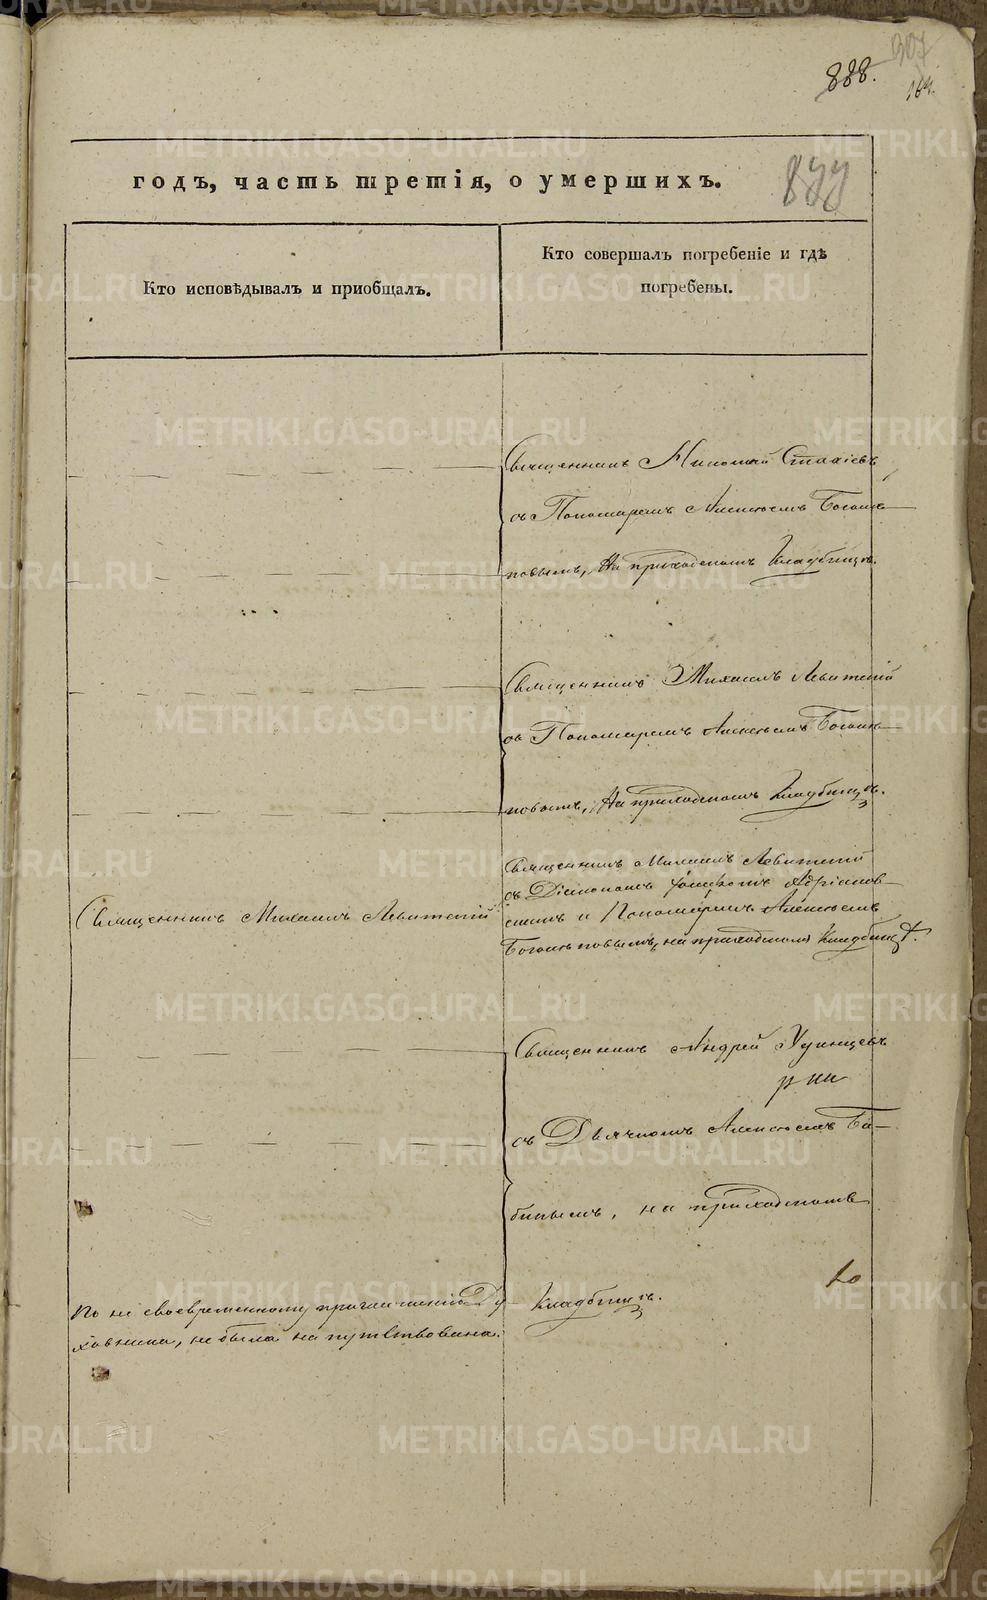 307
888.
164.
877
годъ, часть третія, о умершихъ.
Кто исповѣдывалъ и приобщалъ.
Кто совершалъ погребеніе и гдѣ
погребены.
Священникъ Николай Стахіевъ
съ Пономаремъ Алексѣемъ Богом
повымъ, На приходскомъ Кладбищѣ.
Священникъ Михаилъ Левитскій
съ Пономаремъ Алексѣемъ
повымъ, На приходскомъ Кладбищѣ.
Священникъ Михаилъ Левитскій
Священникъ Михаилъ Левитскій
съ Діакономъ Адріанов-
скимъ и Пономаремъ Алексѣемъ
на приходскомъ Кладбищѣ.
Священникъ Андрей Удинцевъ
съ Дьячкомъ Алексѣемъ Ба-
биным, на приходскомъ
Кладбищѣ.
По не своевременному приглашенію Ду-
ховника, не была напутствована.
METRIKI.GASO-URAL.RU